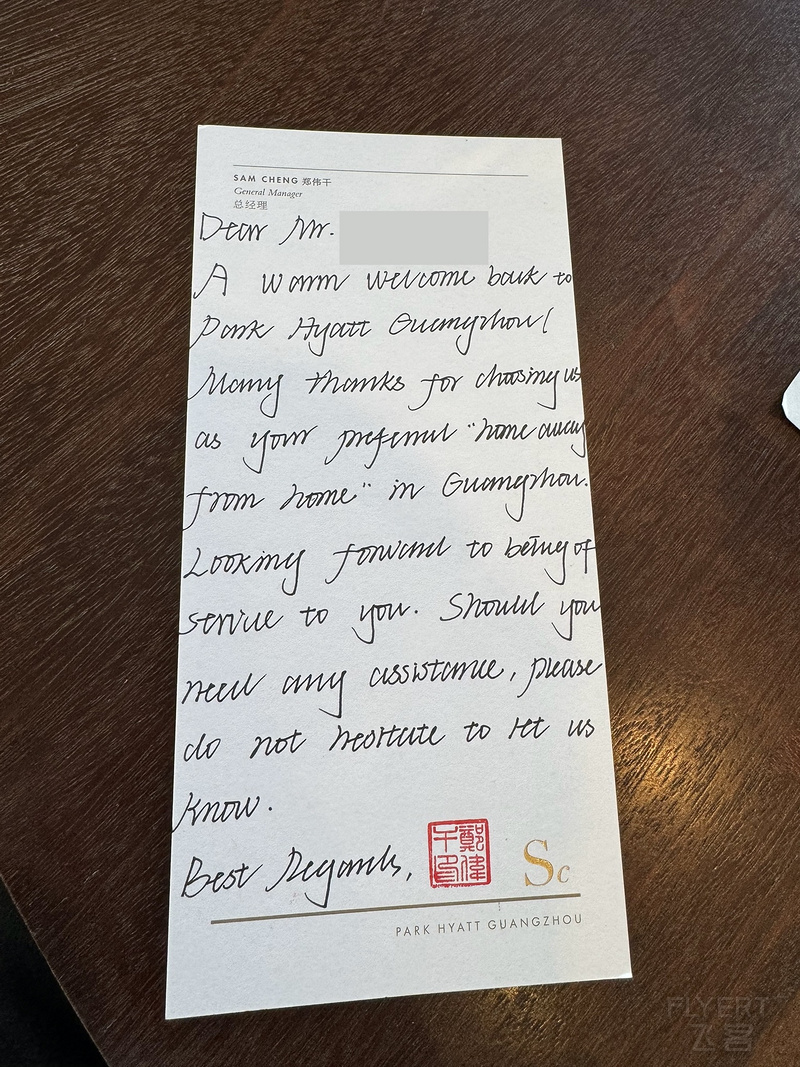 SAM CHENG 郑伟干
General Manager
总经理
Dear Mr.
A warm welcome back to
Park Hyatt Guangzhou!
Many thanks for choosing us
as your preferred "home away
from home" in Guangzhou.
Looking forward to being of
service to you. Should you
need any assistance, please
do not hesitate to let us
know.
Best Regards,
鄭偉
干印
Sc
PARK HYATT GUANGZHOU
FLYERT
飞客